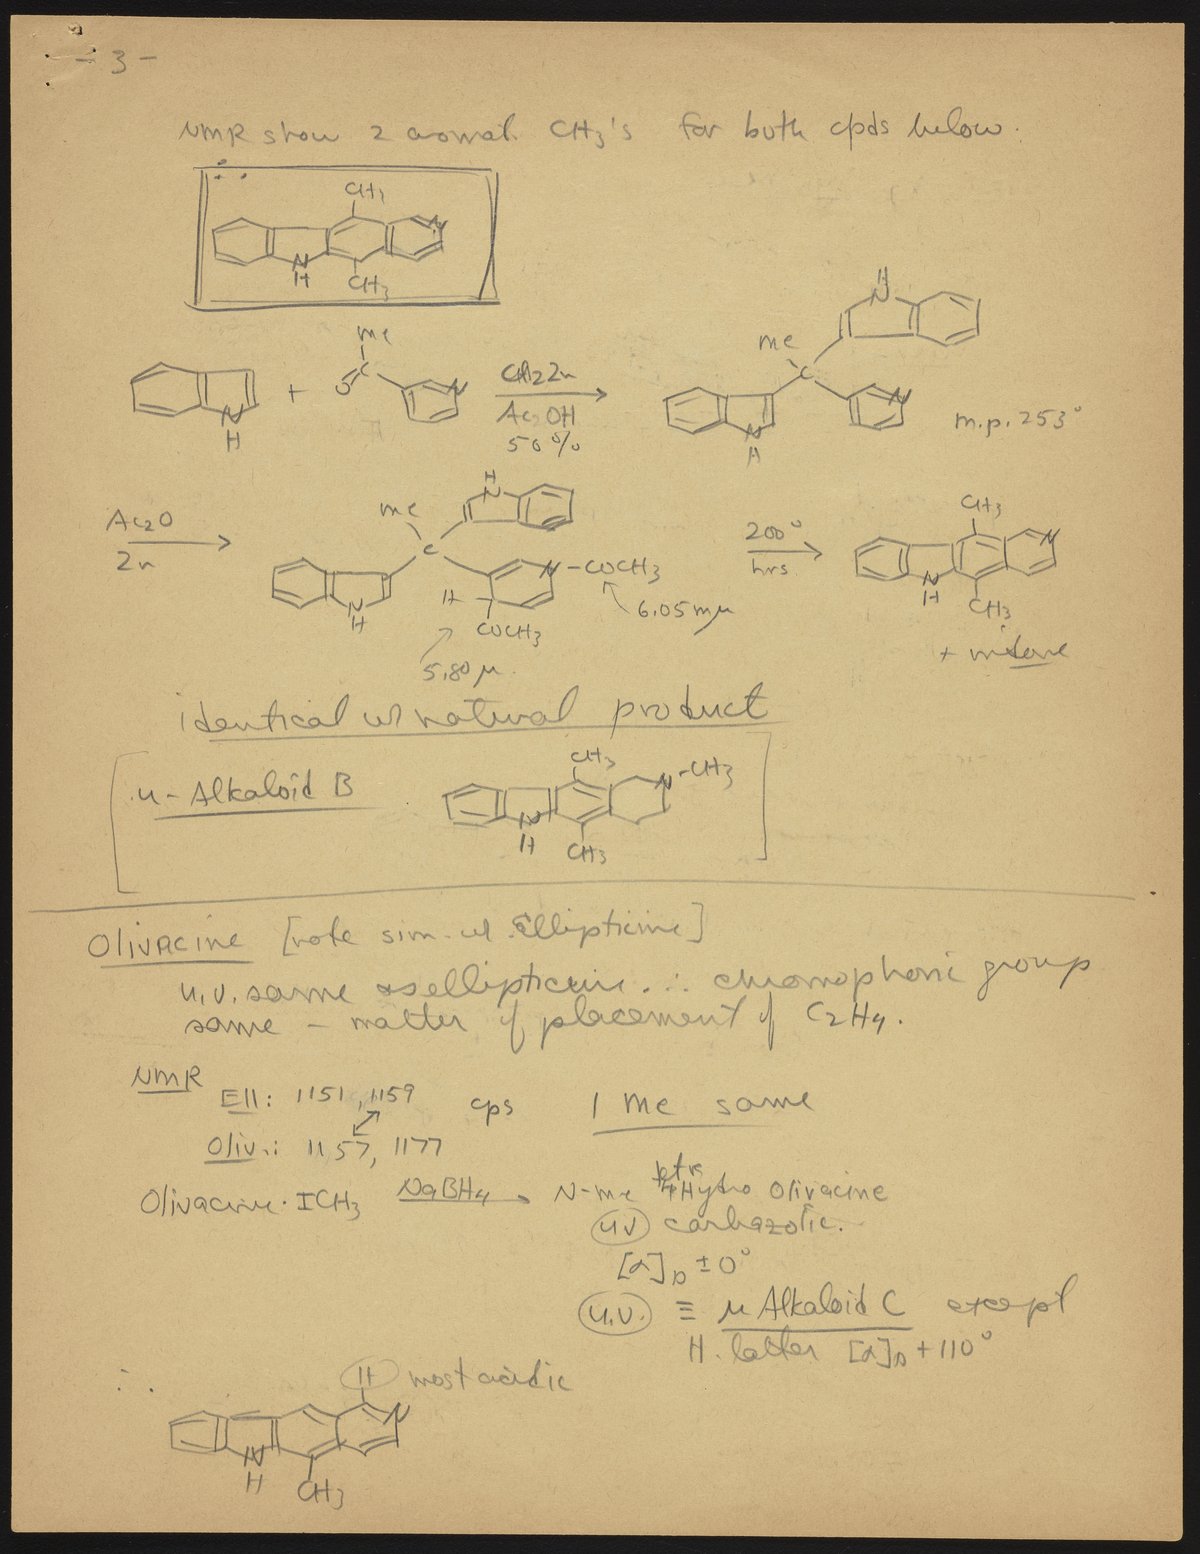 - 3 -
NMR show 2 aromat. CH3's for both cpds below.
∴
CH3
N
N
H
CH3
Me
O
C
+
N
N
H
Ac OH
50%
H
N
Me
C
N
N
H
m.p. 253°
Ac2O
Zn
Me
H
N
C
N - COCH3
H
N
H
COCH3
6.05 mμ
5.80 μ
200°
hrs.
CH3
N
N
H
CH3
+
identical w/ natural product
u - Alkaloid B
CH3
N - CH3
N
H
CH3
Olivacine [note sim. w/ Ellipticine]
u.v. same as ellipticine. ∴ chromophoric group
same - matter of placement of C2H4.
NMR
Ell: 1151, 1159 cps 1 Me same
Oliv.: 1157, 1177
Olivacine · ICH3 NaBH4 → N-me tetra Hydro Olivacine
u.v. carbazolic.
[α]D ± 0°
u.v. ≡ μ Alkaloid C except
latter [α]D + 110°
∴ H most acidic
N
N
H
CH3